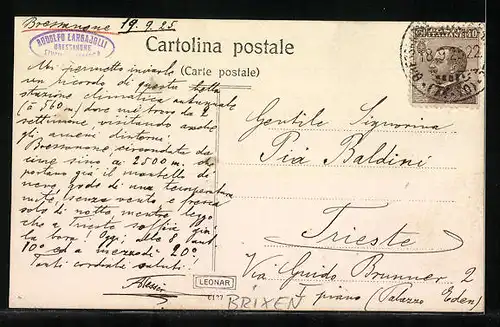 Bressanone 19.9.25.
RODOLFO LARGAJOLLI
BRESSANONE
Cartolina postale
(Carte postale)
Mi permetto inviarle
un ricordo di questa bella
stazione climatica autunnale
(a 560 m) dove mi trovo da 2
settimane, visitando anche
gli ameni dintorni.
Bressanone, circondata da
cime sino a 2500 m. che
portano già il mantello di
neve, gode di una temperatura
mite, senza vento e fresca
solo di notte, mentre leggo
che a Trieste soffia già
la bora! Oggi alle 8 ant.
10° ed a mezzodì 20°.
Tanti cordiali saluti!
Gentile Signorina
Pia Baldini
Trieste
Via Guido Brunner 2
I piano (Palazzo Eden)
LEONAR
6127
BRIXEN